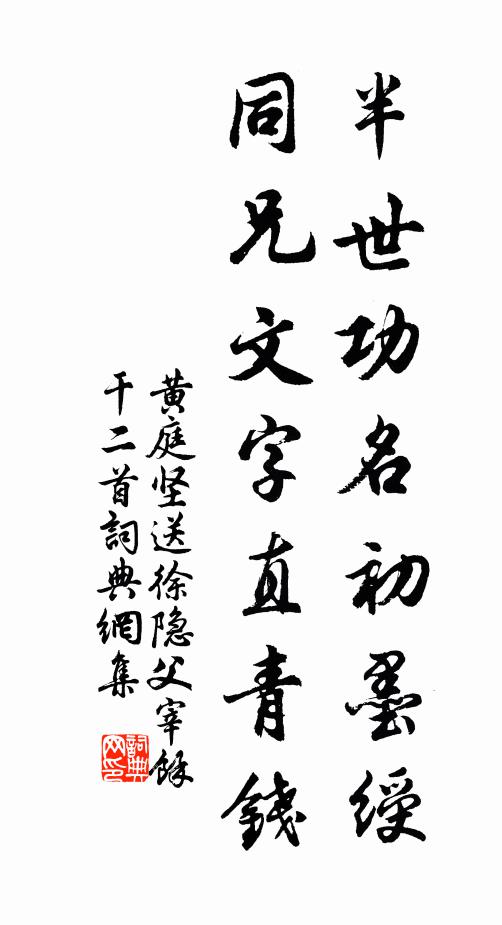 半世功名初墨綬
同兄文字直青錢
黄庭坚送徐隐父宰馀
干二首詞典網集
詞典
网印